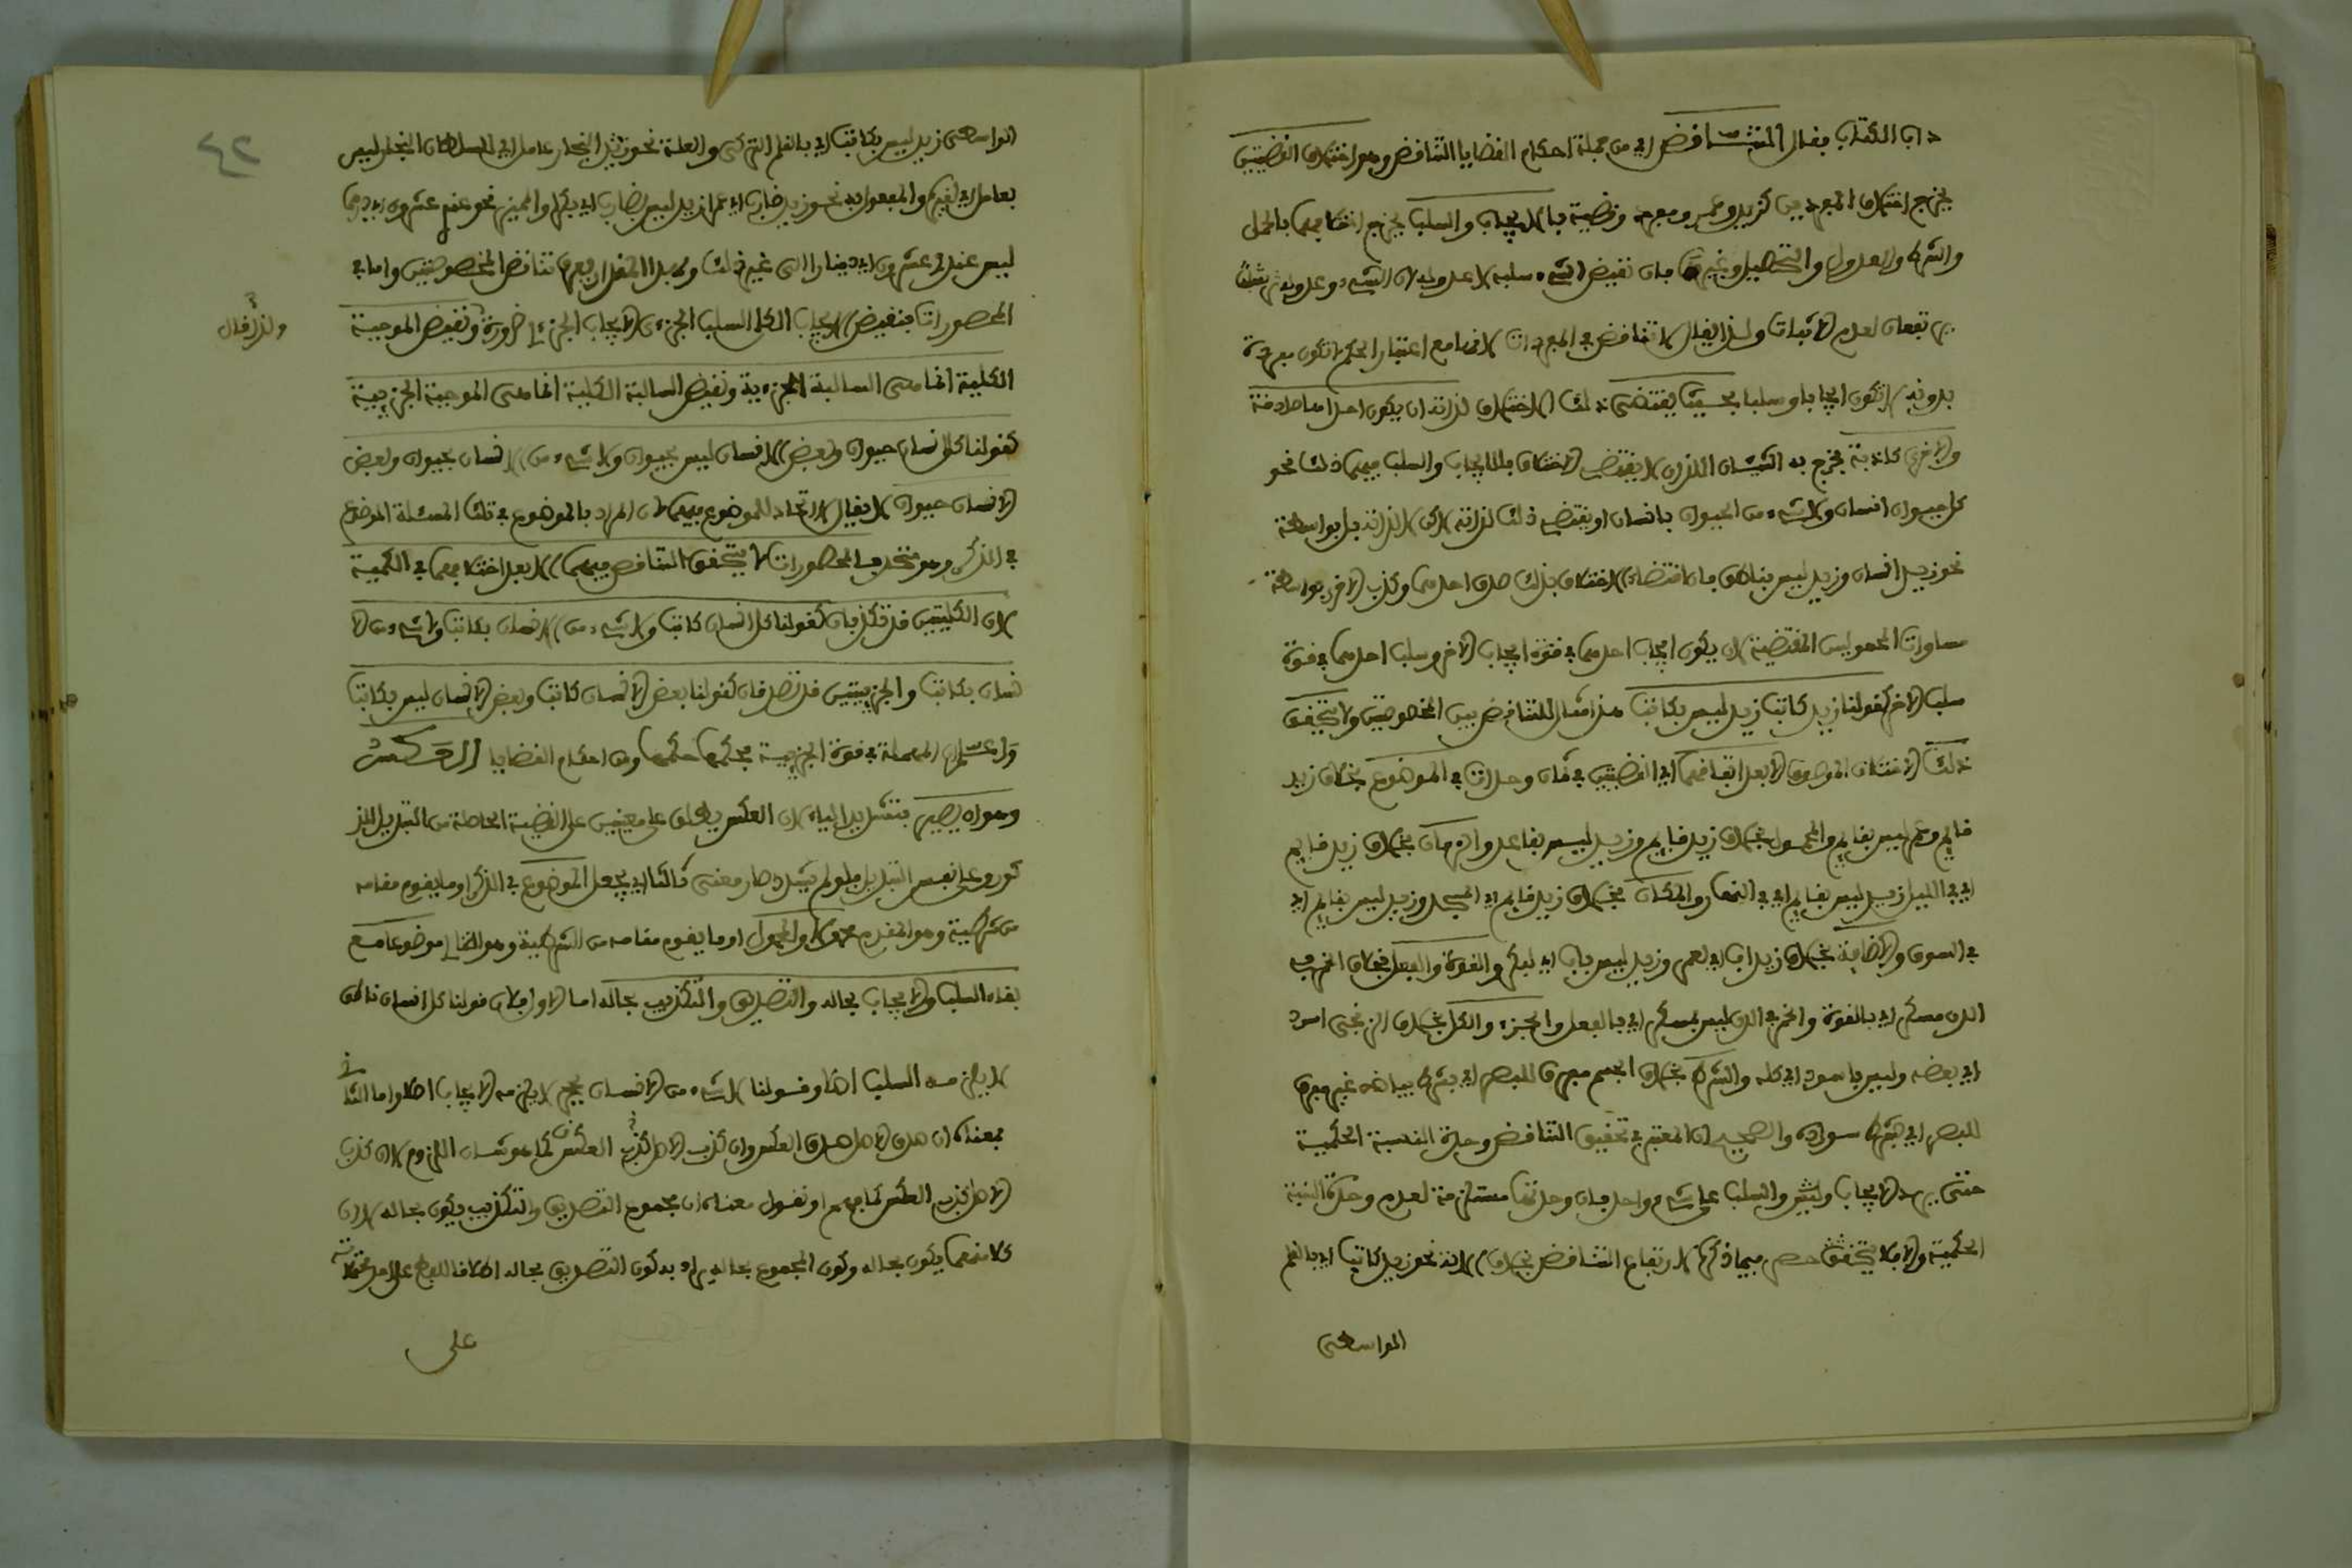 داب الكتاب فقال التناقض اي من جملة احكام القضايا التناقض وهو اختلاف القضيتين
يخرج اختلاف المفردين كزيد وعمرو ومفرد وقضية بالايجاب والسلب يخرج اختلافهما بالحمل
والشرط والعدول والتحصيل وغير فان نقيض الشيء سلبه لا عدوله لان الشيء وعدوله
يرتفعان لعدم الاثبات ولذا يقال لا تناقض في المفردات لانها مع اعتبار الحكم لا تكون مفردة
بدونه لا تكون ايجابا وسلبا بحيث يقتضي ذلك الاختلاف لذاته ان يكون احداهما صادقة
والاخرى كاذبة يخرج به الشيئان اللذان لا يقتضي الاختلاف بالايجاب والسلب فيهما ذلك نحو
كل حيوان انسان ولا شيء من الحيوان بانسان او يقتضي ذلك لذاته لكن لا لذاته بل بواسطة
نحو زيد انسان وزيد ليس بناطق فان اقتضاء الاختلاف بذلك صدق احدهما وكذب الاخرى بواسطة
مساوات المحمولين المقتضية لان يكون ايجاب احدهما في قوة ايجاب الاخر وسلب احدهما في قوة
سلب الاخر كقولنا زيد كاتب زيد ليس بكاتب هذا مثال للتناقض بين المخصوصتين ولا يتحقق
ذلك الاختلاف الموصوف الا بعد اتفاقهما اي القضيتين في ثمان وحدات في الموضوع بخلاف زيد
قايم وعمر ليس بقايم والمحمول بخلاف زيد قايم وزيد ليس بقاعد والزمان بخلاف زيد قايم
اي في الليل زيد ليس بقايم اي في النهار والمكان بخلاف زيد قايم اي المسجد وزيد ليس بقايم اي
في السوق والاضافة بخلاف زيد اب اي لعمر وزيد ليس باب اي لبكر والقوة والفعل بخلاف الخمر في
الدن مسكر اي بالقوة والخمر في الدن ليس بمسكر اي بالفعل والجزء والكل بخلاف الزنجي اسود
اي بعضه وليس باسود اي كله والشرط بخلاف الجسم مفرق للبصر اي بشرط بياضه غير مفرق
للبصر اي بشرط سواده والصحيح ان المعتبر في تحقيق التناقض وحدة النسبة الحكمية
حتى يرد الايجاب والسلب على شيء واحد فان وحدتها مستلزمة لعدم وحدة النسبة
الحكمية والا فلا يتحقق حصر فيما ذكرها لارتفاع التناقض بخلاف الالة نحو زيد كاتب اي بالقلم
الواسطي
الواسطي زيد ليس بكاتب اي بالقلم التركي والعلة نحو النجار عامل اي للسلطان النجار ليس
بعامل اي لغيره والمفعول به نحو زيد ضارب اي عمرا زيد ليس بضارب اي بكرا والمميز نحو عندي عشرون اي درهما
ليس عندي عشرون اي دينارا الى غير ذلك تناقض المخصوصتين واما في
المحصورات فنقيض الايجاب الكلي السلب الجزءي لا الايجاب الجزءي ضرورة ونقيض الموجبة
ولذا قال
الكلية انما هي السالبة الجزءية ونقيض السالبة الكلية انما هي الموجبة الجزءية
كقولنا كل انسان حيوان وبعض الانسان ليس بحيوان ولا شيء من الانسان بحيوان وبعض
الانسان حيوان لا يقال لا اتحاد للموضوع فيهما لان المراد بالموضوع في تلك المسئلة الموضوع
في الذكر وهو متحد في المحصورات لا يتحقق التناقض فيهما الا بعد اختلافهما في الكمية
لان الكليتين قد تكذبان كقولنا كل انسان كاتب ولا شيء من الانسان بكاتب ولا شيء من الا
نسان بكاتب والجزءيتين قد تصدقان كقولنا بعض الانسان كاتب وبعض الانسان ليس بكاتب
واعلم ان المهملة في قوة الجزءية فحكمها حكمها ومن احكام القضايا العكس
وهو ان يصير بتشديد الياء لان العكس يطلق على معنيين على القضية الحاصلة من التبديل المذ
كور وعلى نفس التبديل فلو لم يشدد صار معنى ثالثا اي يجعل الموضوع في الذكر او ما يقوم مقامه
من شرطية وهو المقدم محمولا والمحمول او ما يقوم مقامه من الشرطية وهو التالي موضوعا مع
بقاء السلب والايجاب بحاله والتصديق والتكذيب بحاله اما الاول فلان قولنا كل انسان ناطق
لا يلزمه السلب اصلا وقولنا لا شيء من الانسان بحجر لا يلزمه الايجاب اصلا واما الثاني
فمعناه ان صدق الاصل صدق العكس وان كذب الاصل كذب العكس كما هو شان اللزوم لان كذب
الاصل كذب العكس كما فهم او نقول معناه ان مجموع التصديق والتكذيب يكون بحاله لا ان
كلا منهما يكون بحاله وكون المجموع بحاله يراد به كون التصديق بحاله اطلاقا للفظ على
على
٤٢